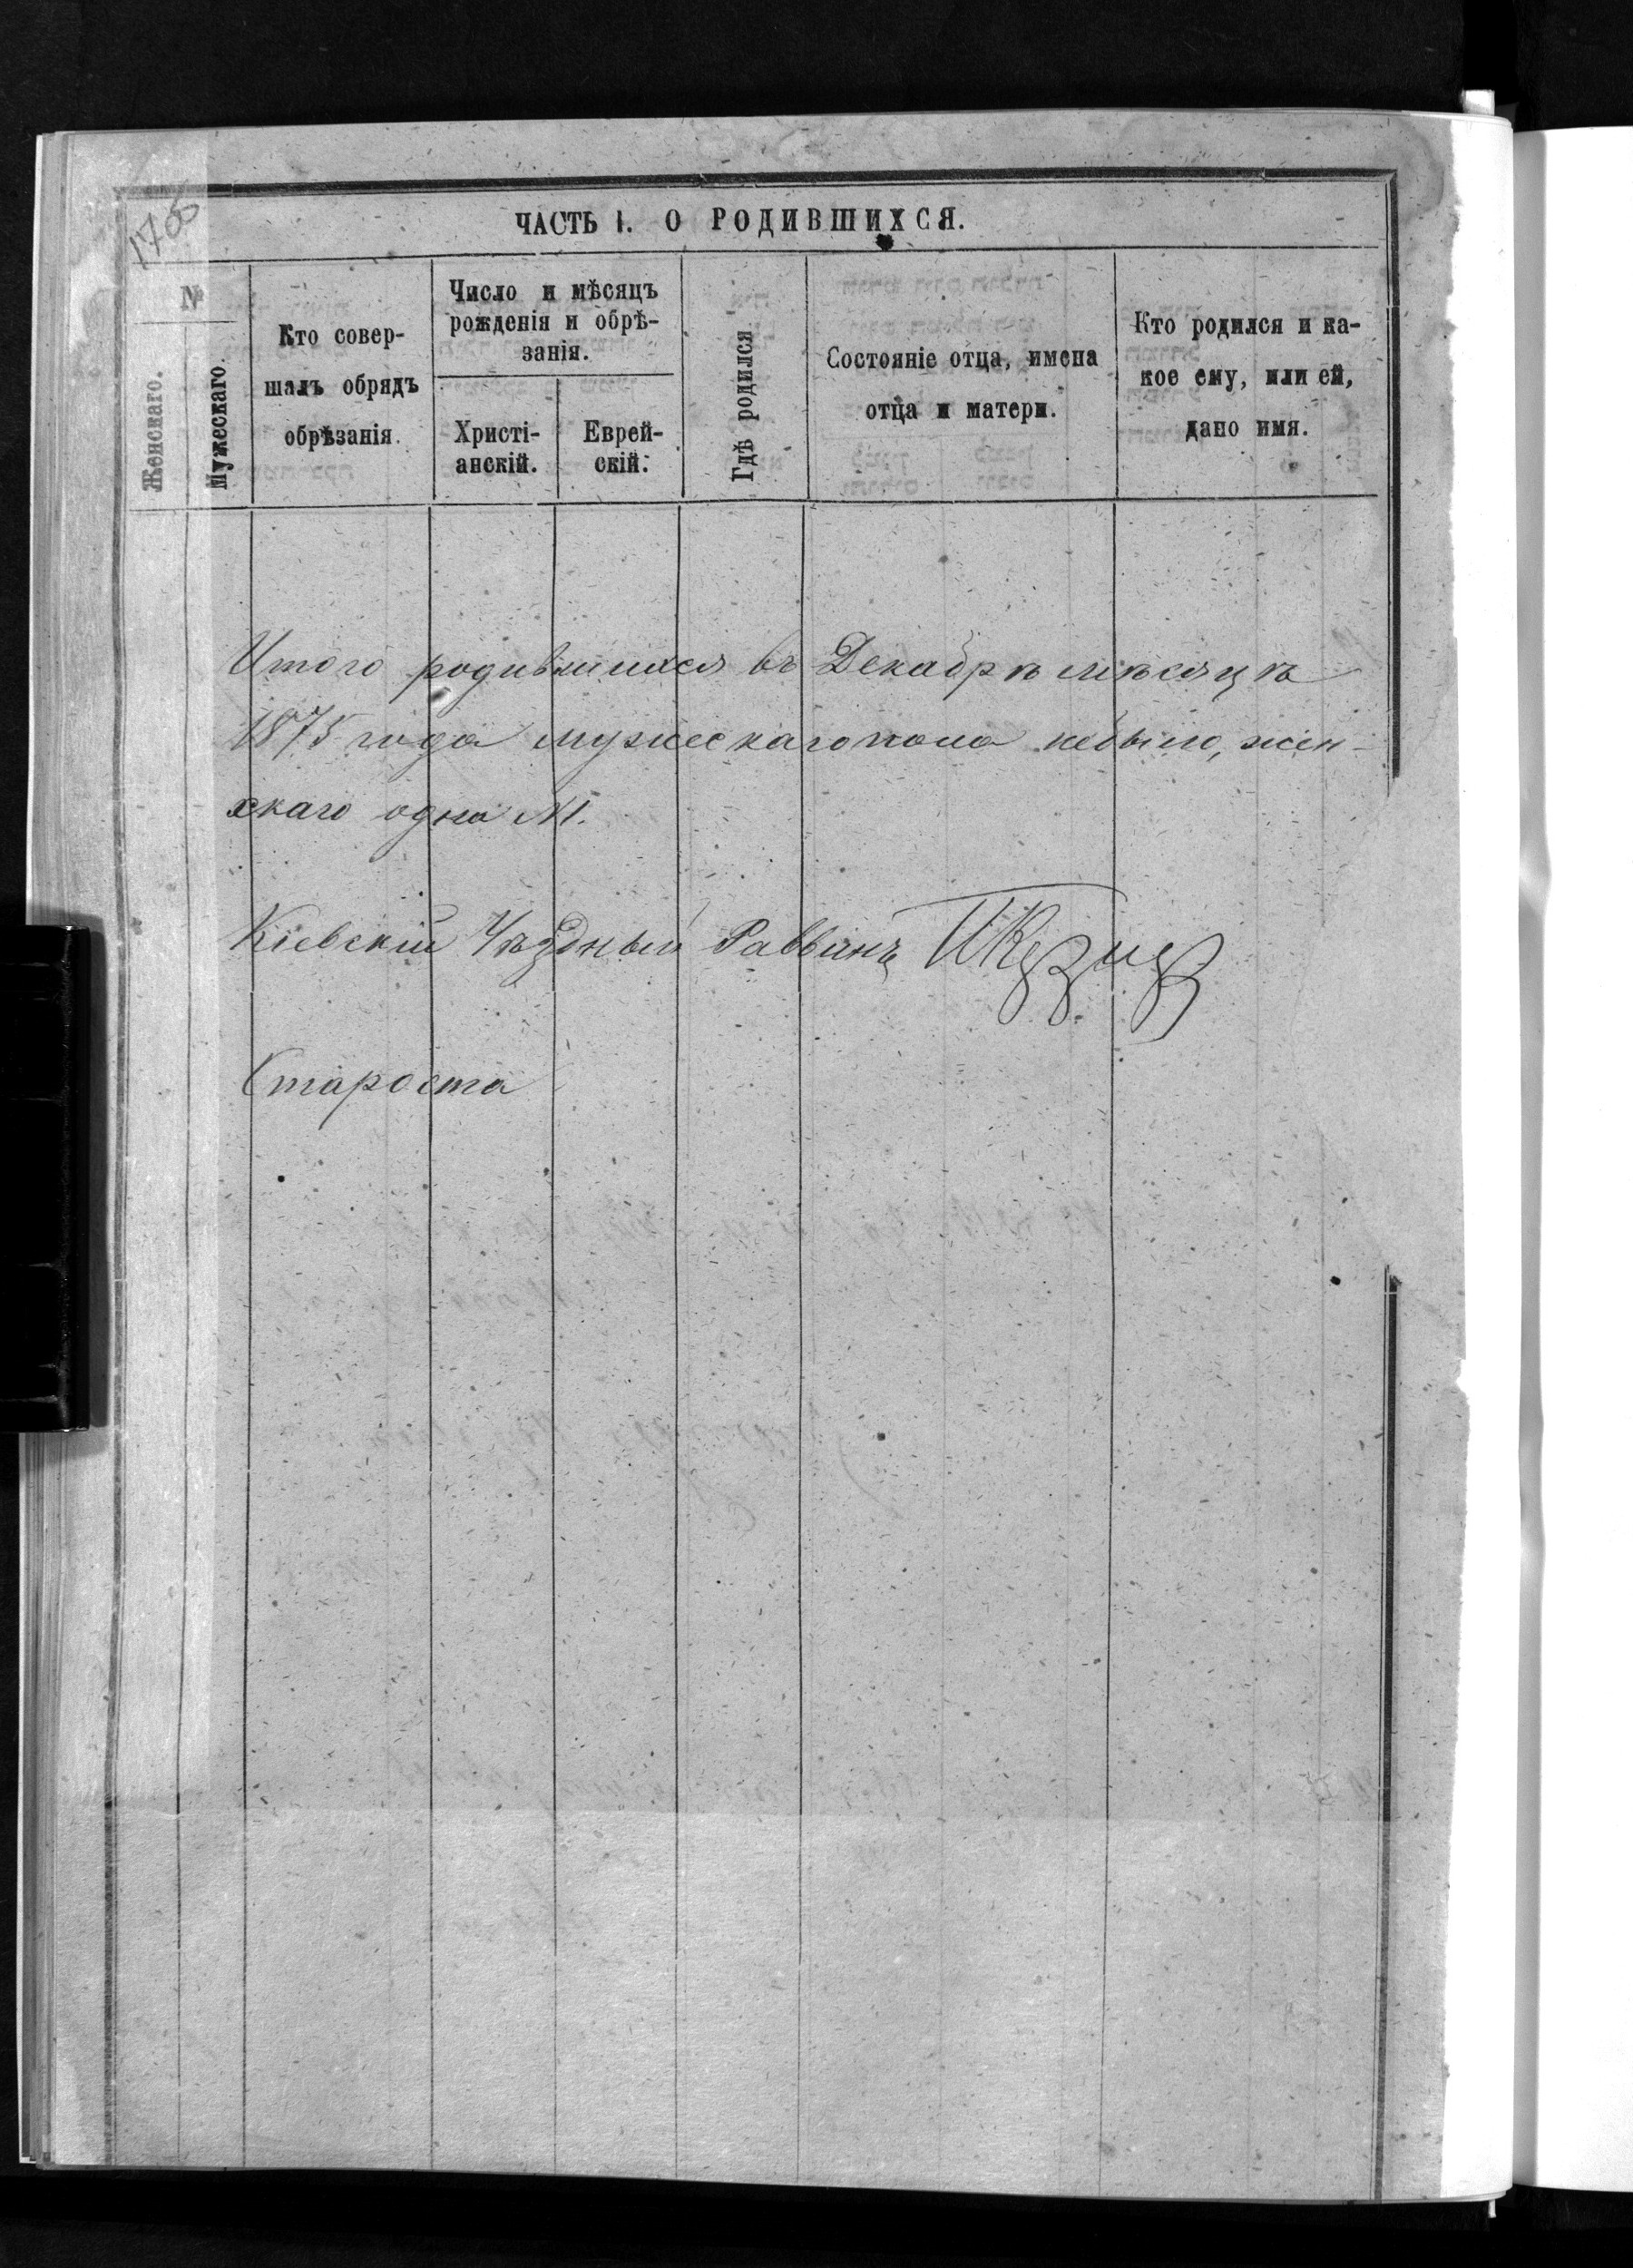 1706
ЧАСТЬ I. О РОДИВШИХСЯ.
№
Женскаго.
Мужескаго.
Кто совер-
шалъ обрядъ
обрѣзанія.
Число и мѣсяцъ
рожденія и обрѣ-
занія.
Христі-
анскій.
Еврей-
скій.
Гдѣ родился
Состояніе отца, имена
отца и матери.
Кто родился и ка-
кое ему, или ей,
дано имя.
Итого родившихся въ Декабрѣ мѣсяцѣ
1875 года мужескаго пола небыло, жен-
скаго одна №1.
Кіевскій Уѣздный Раввинъ
Староста